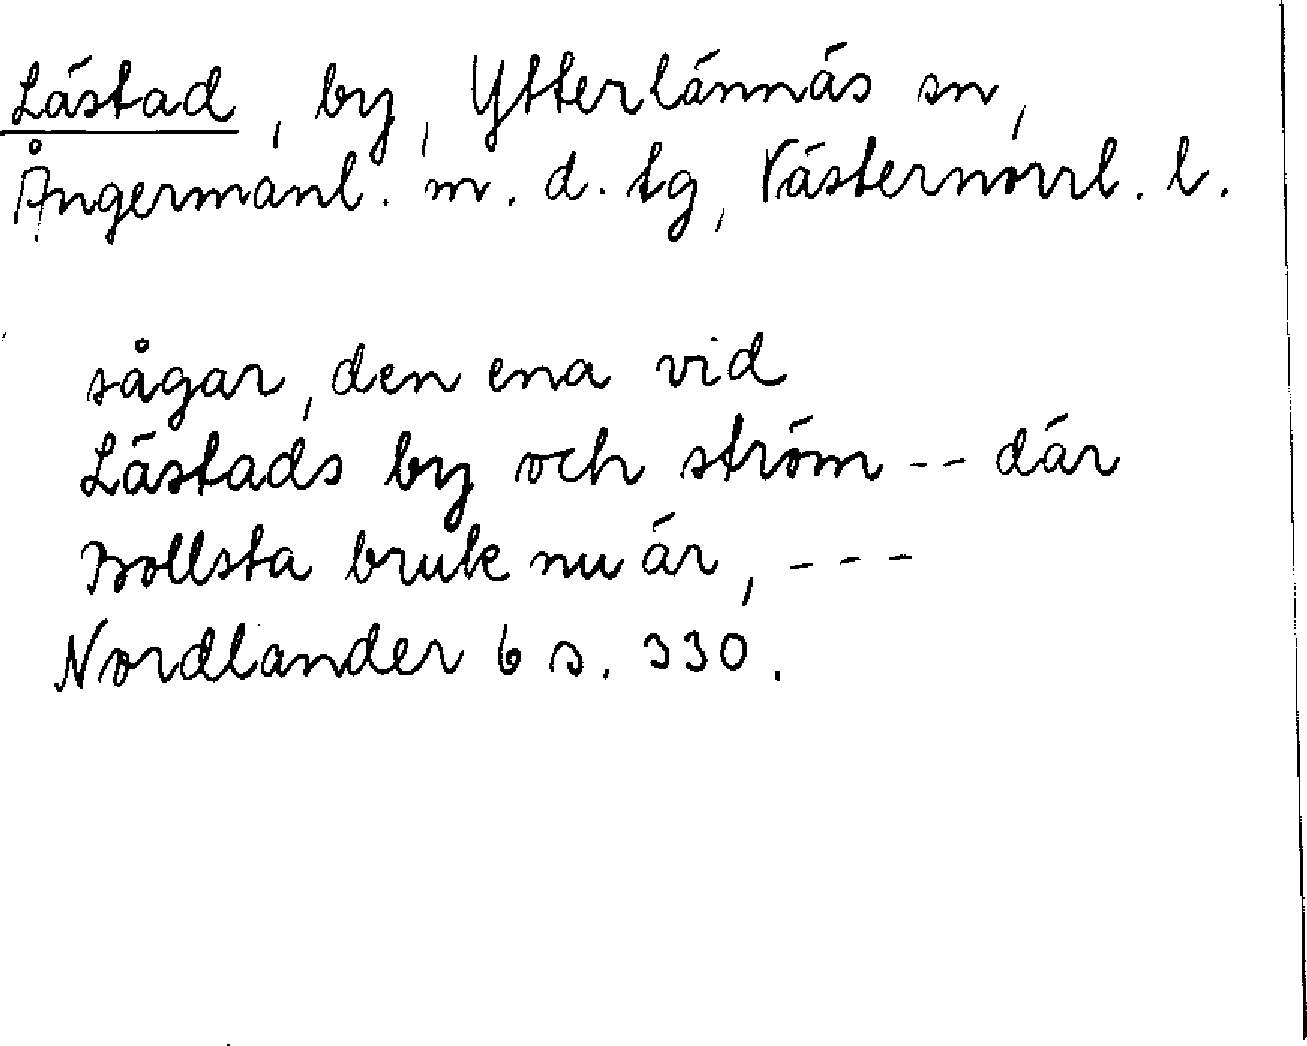 Lästad, by, Ytterlännäs sn,
Ångermanl. m. d. tg, Västernorrl. l.
sågar, den ena vid
Lästads by och ström -- där
Bollsta bruk nu är, ---
Nordlander 6 s. 330.